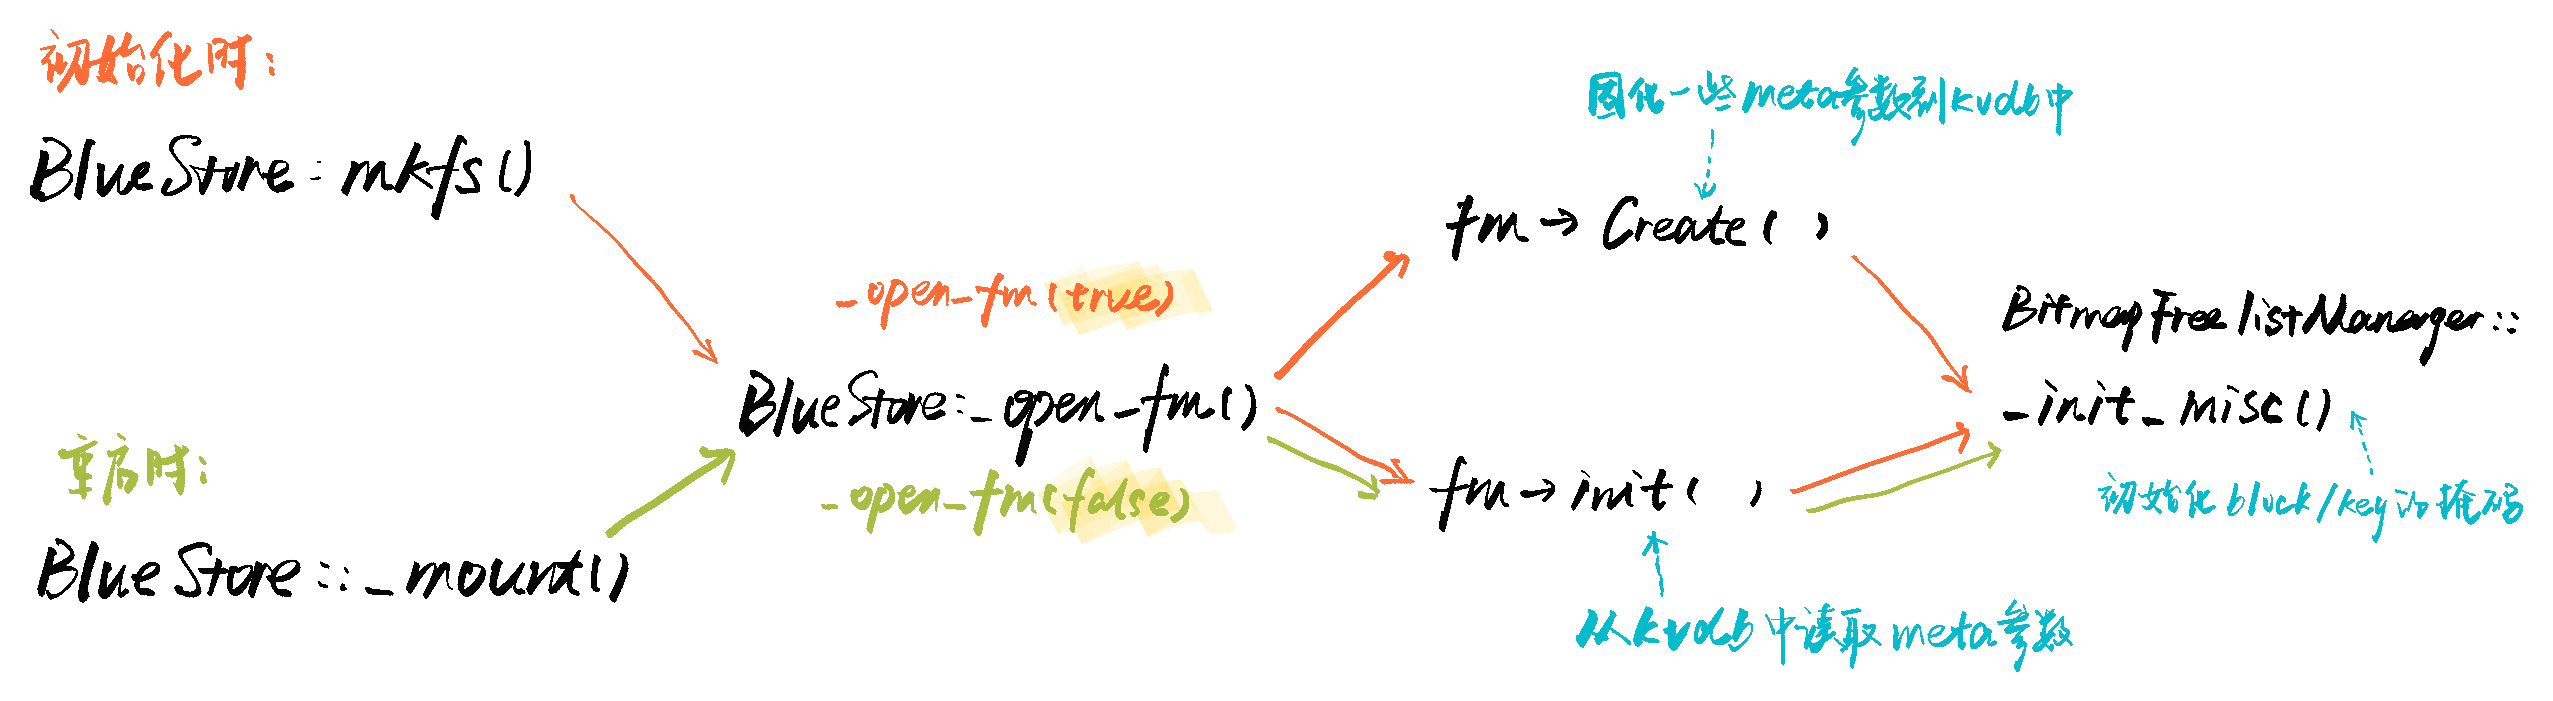 初始化时：
BlueStore::mkfs()
重启时：
BlueStore::_mount()
_open_fm(true)
BlueStore::_open_fm()
_open_fm(false)
固化一些meta参数到kvdb中
fm→Create( )
fm→init( )
从kvdb中读取meta参数
BitmapFreelistManager::
_init_misc()
初始化block/key的掩码